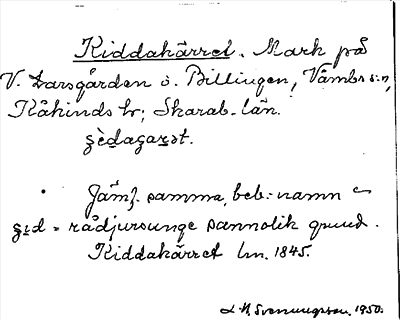 Kiddakärret. Mark på
V. Larsgården ö. Billingen, Våmbs sn,
Kåkinds hd; Skarab. län.
Jämf. samma beb.-namn
= rådjursunge sannolik grund.
Kiddakärret lm. 1845.
1950.